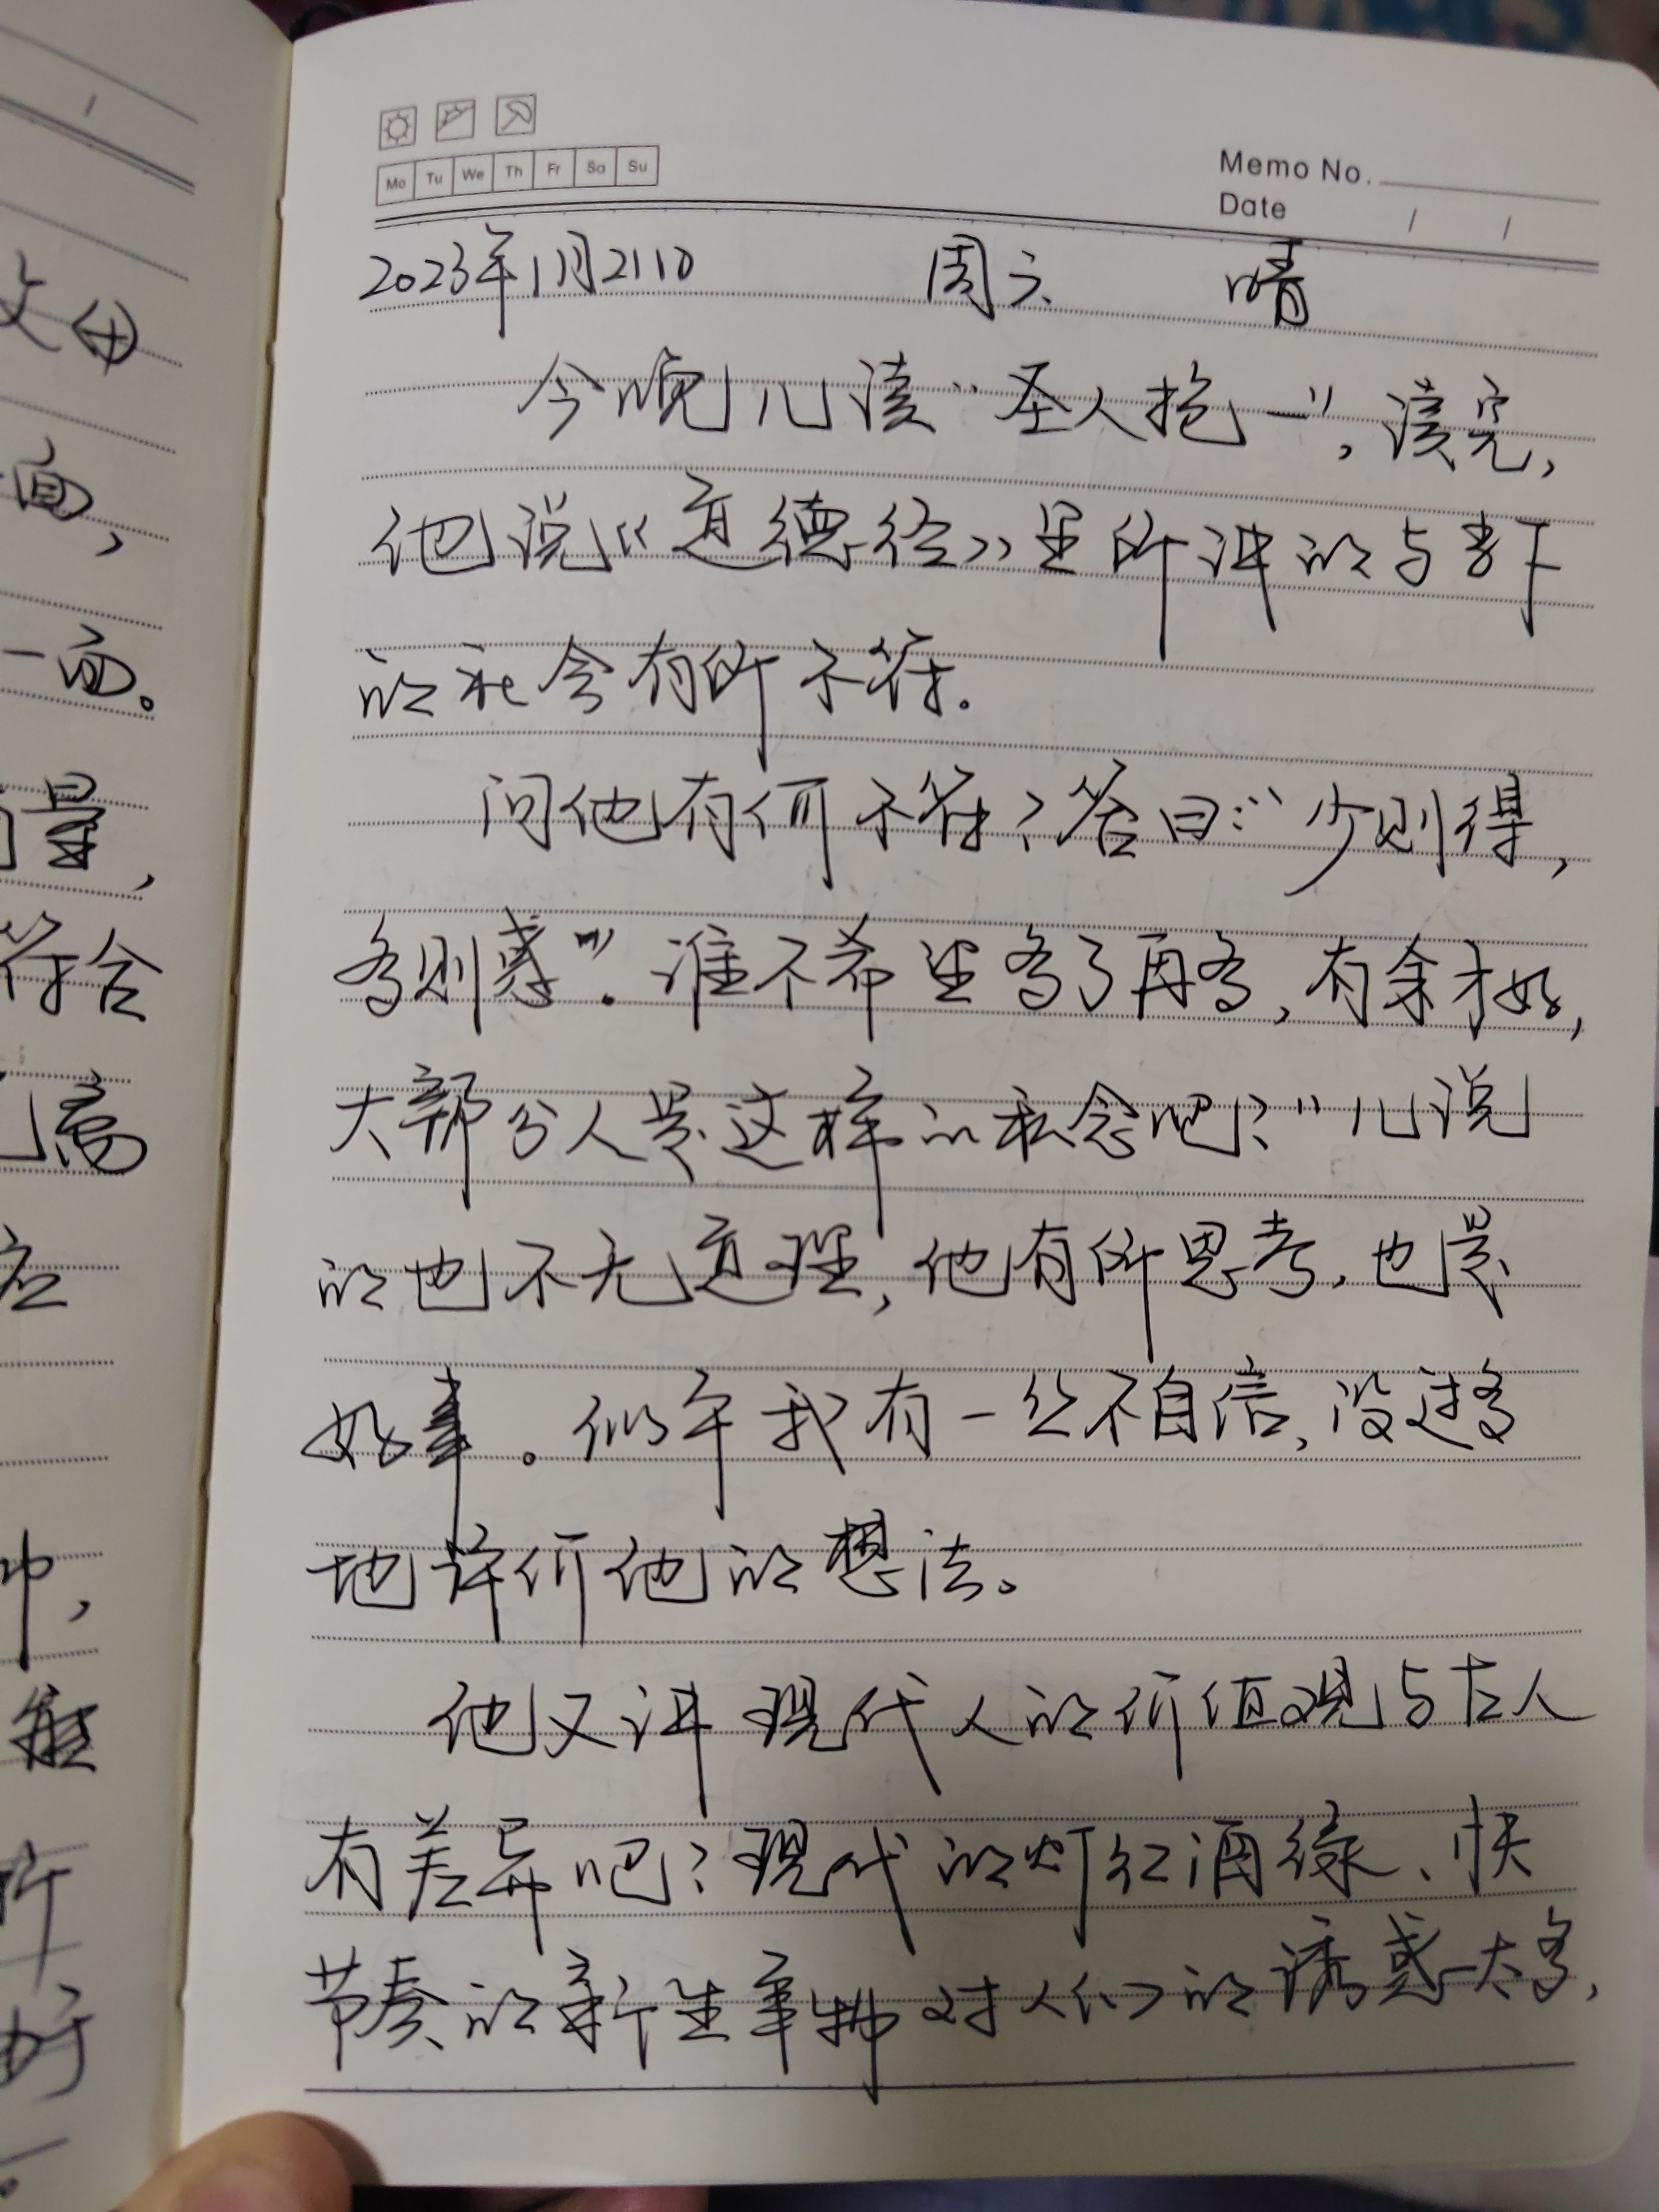 文母
面，
一面。
量，
符合
高
应
中，
能
所
好
Mo Tu We Th Fr Sa Su
Memo No.
Date / /
2023年1月21日 周六 晴
今晚儿读“圣人抱一”，读完，
他说《道德经》里所讲的与当下
的社会有所不符。
问他有何不符？答曰：“少则得，
多则惑”。谁不希望多了再多，有余才好，
大部分人是这样的私念吧？”儿说
的也不无道理，他有所思考，也是
好事。似乎我有一丝不自信，没过多
地评价他的想法。
他又讲现代人的价值观与古人
有差异吧？现代的灯红酒绿、快
节奏的新生事物对人们的诱惑太多，